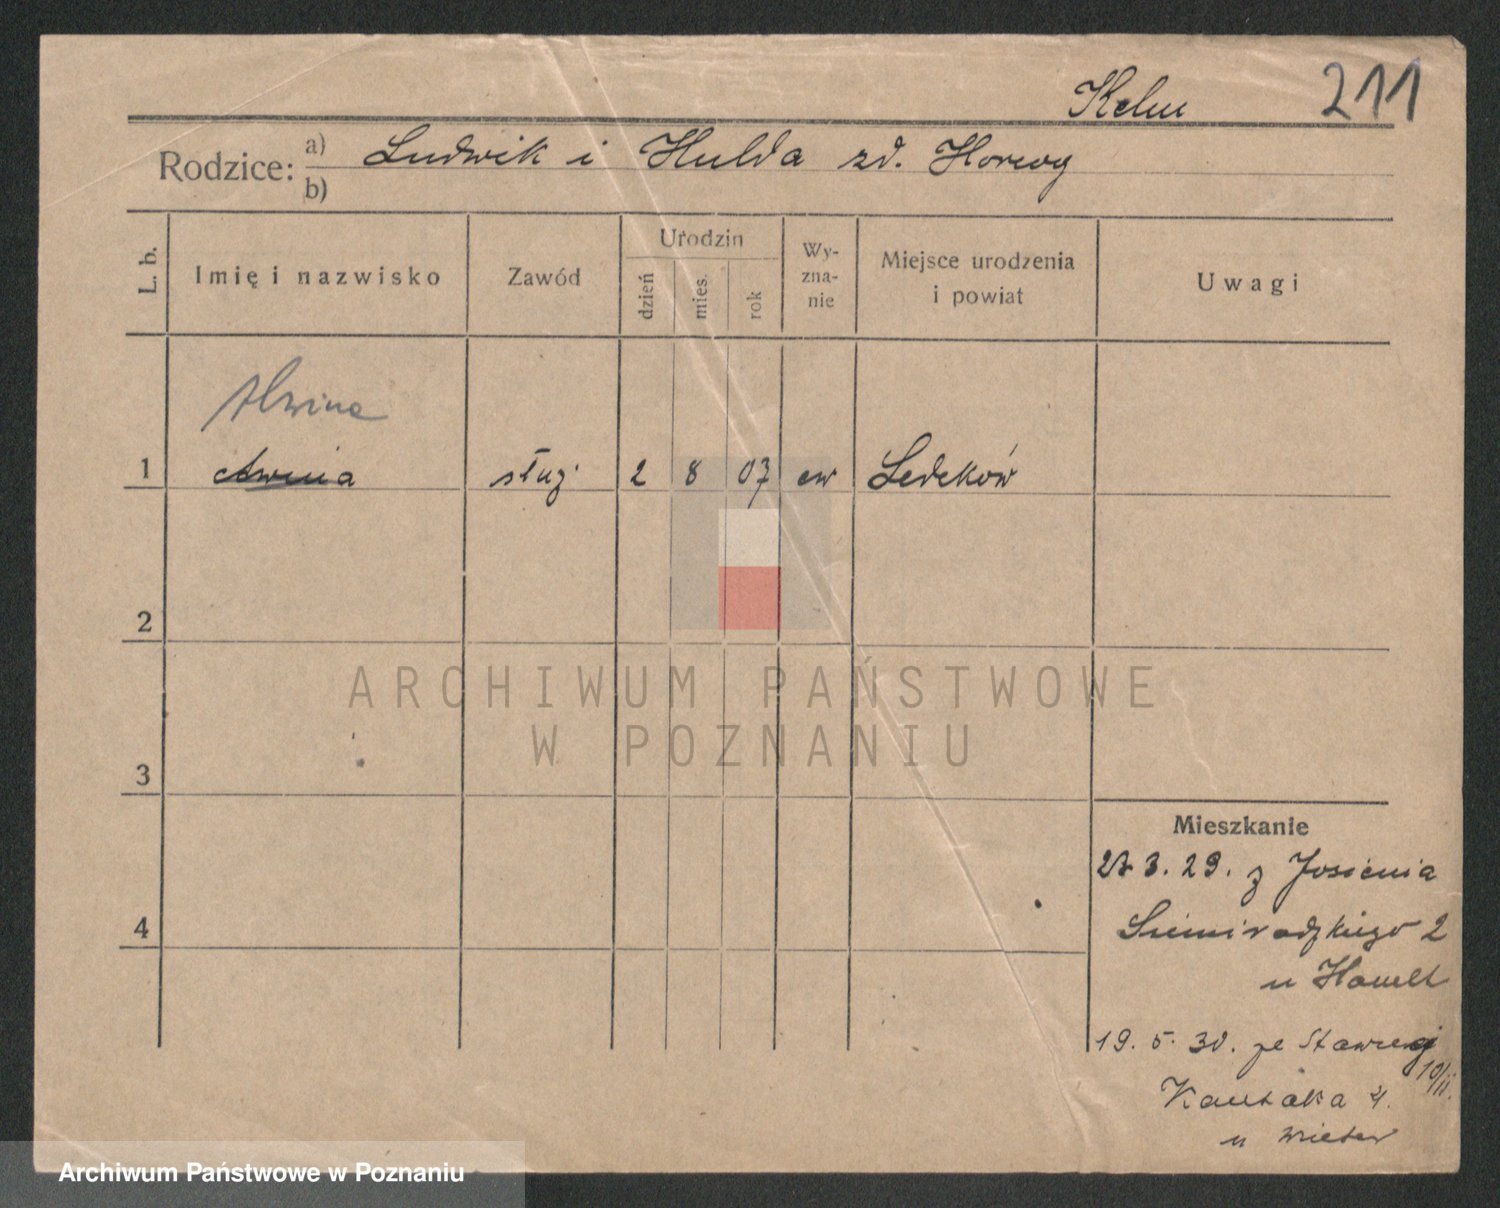 Kelm 211
Rodzice: a) Ludwik i Hulda zd.
b)
L. b. Imię i nazwisko Zawód Urodzin dzień mies. rok Wyznanie Miejsce urodzenia i powiat Uwagi
Alwina
1 służ. 2 8 07 ew
2
3
4
ARCHIWUM PAŃSTWOWE
W POZNANIU
Mieszkanie
3. 29. z
Siemiradzkiego 2
u
19. 5. 30. ze
10/II.
Kantaka 4.
u
Archiwum Państwowe w Poznaniu